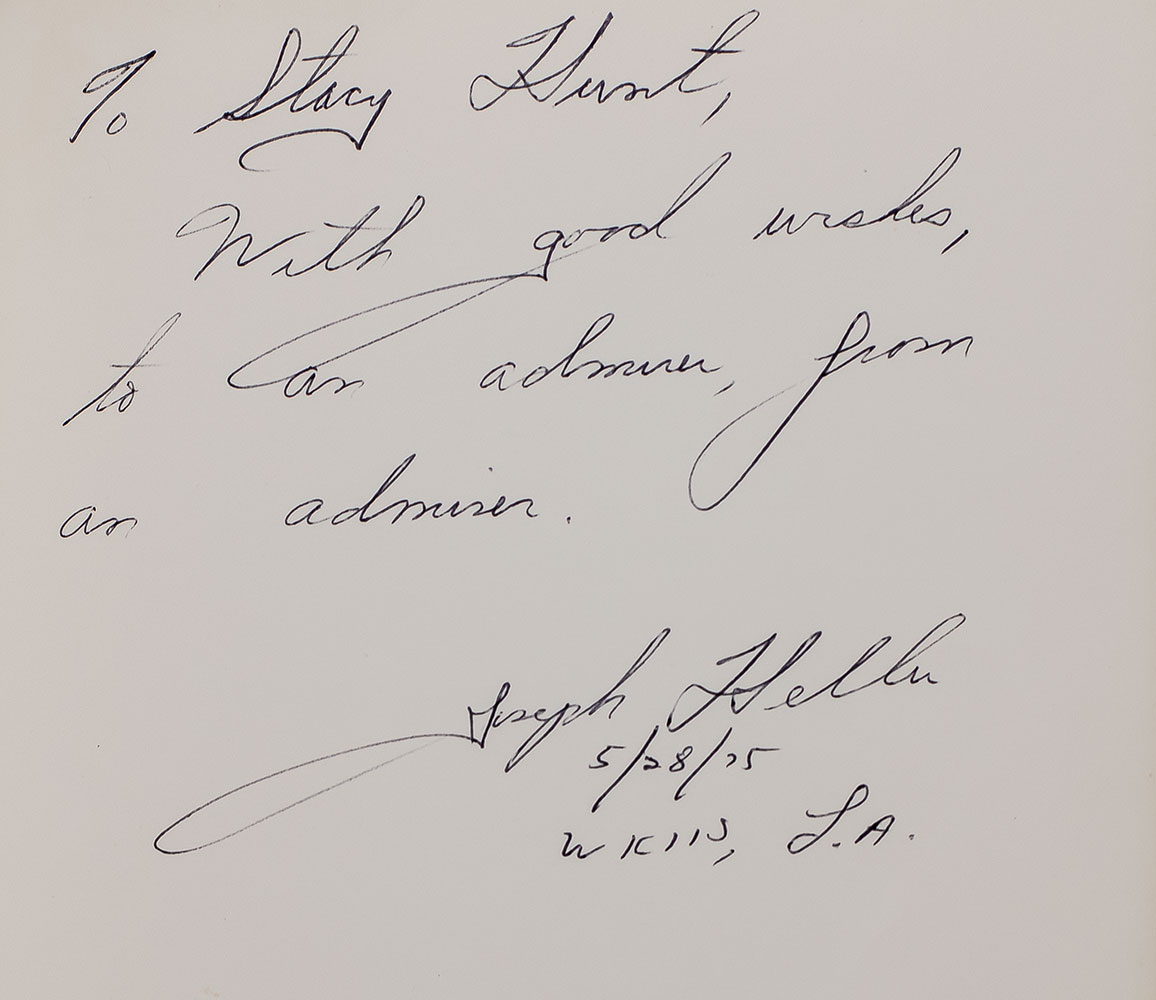 To Stacy Hunt,
With good wishes,
to an admirer, from
an admirer.
Joseph Heller
5/28/75
WKIIS, L.A.